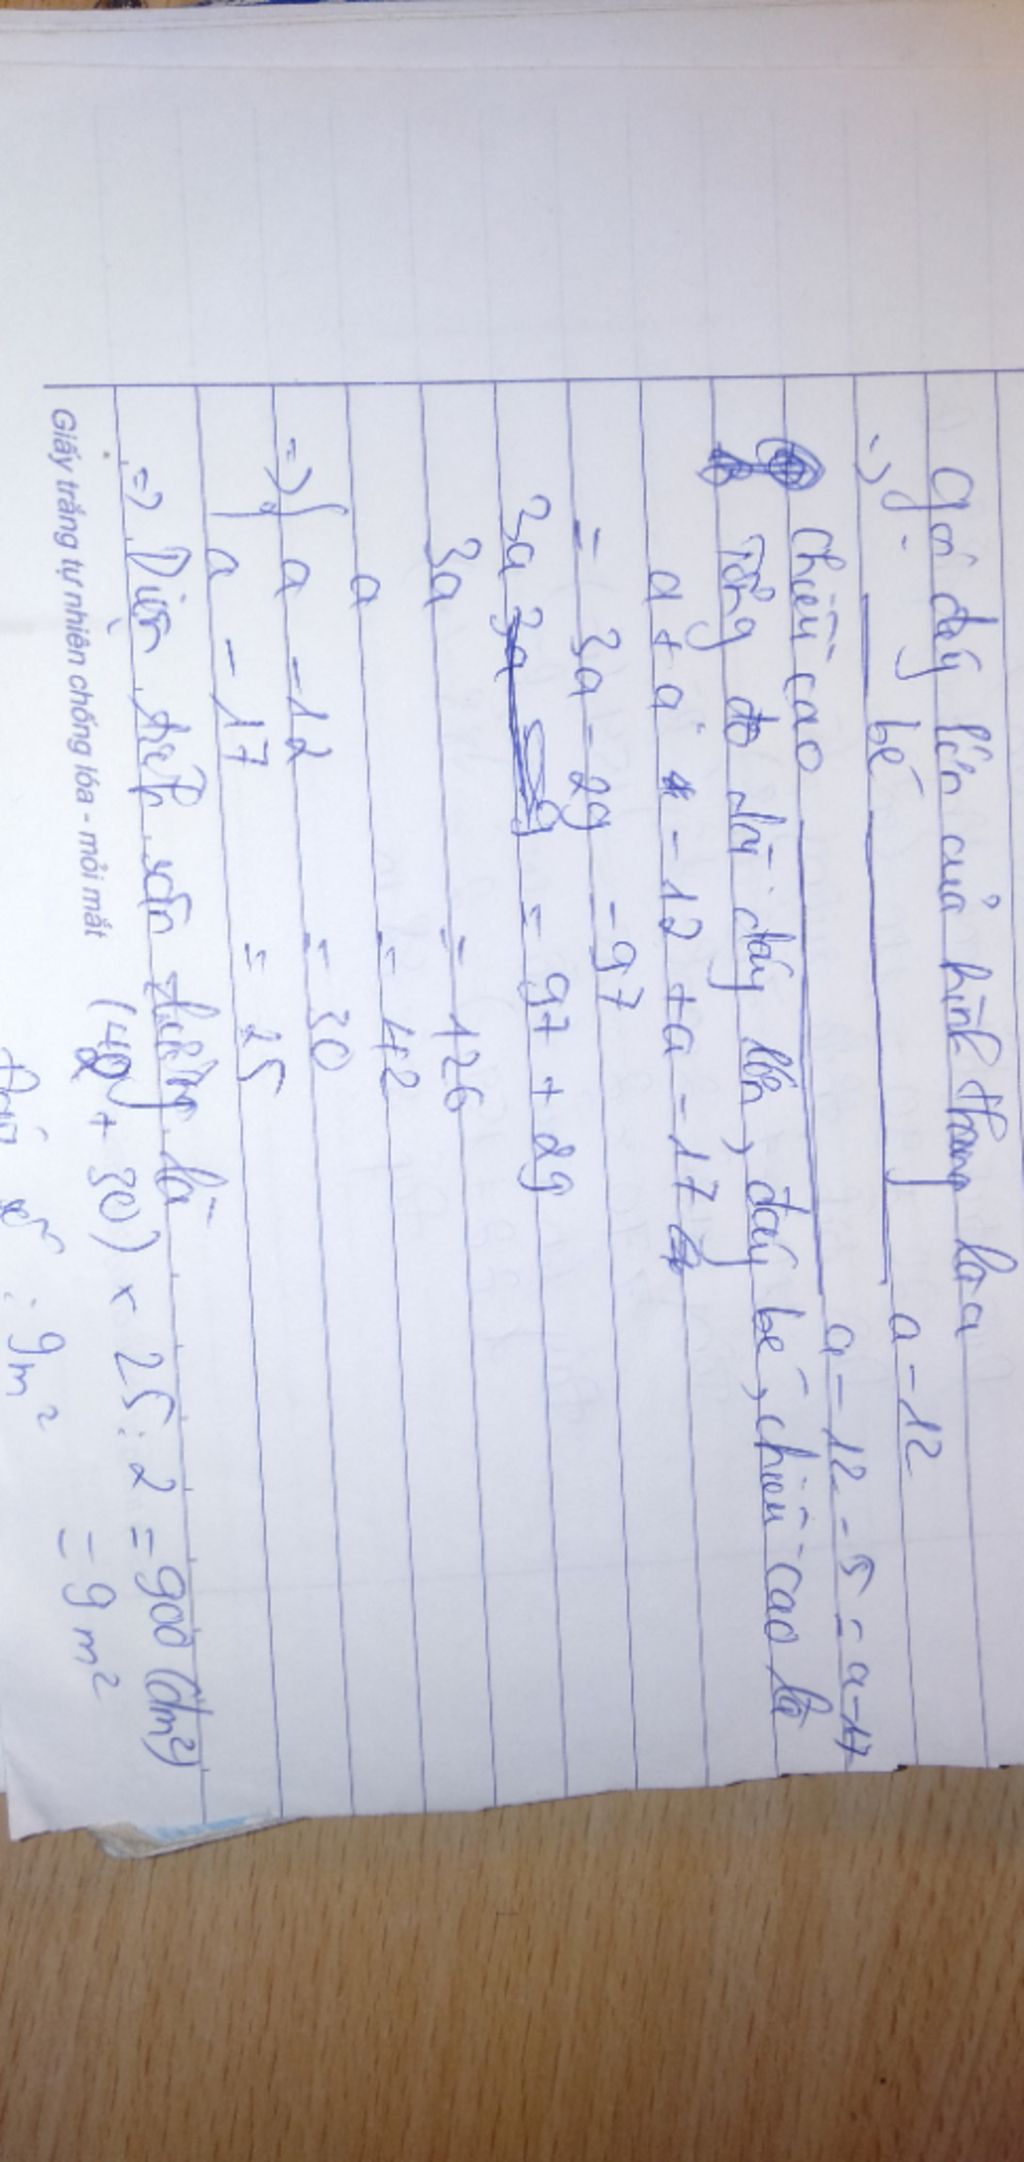 Gọi đáy lớn của hình thang là a
=> bé a - 12
chiều cao a - 12 - 5 = a - 17
Tổng độ dài đáy lớn, đáy bé, chiều cao là
a + a - 12 + a - 17
= 3a - 29 = 97
3a = 97 + 29
3a = 126
a = 42
=> { a - 12 = 30
a - 17 = 25
=> Diện tích là
(42 + 30) x 25 : 2 = 900 (dm²)
= 9 m²
Giấy trắng tự nhiên chống lóa - mỏi mắt
số : 9m²